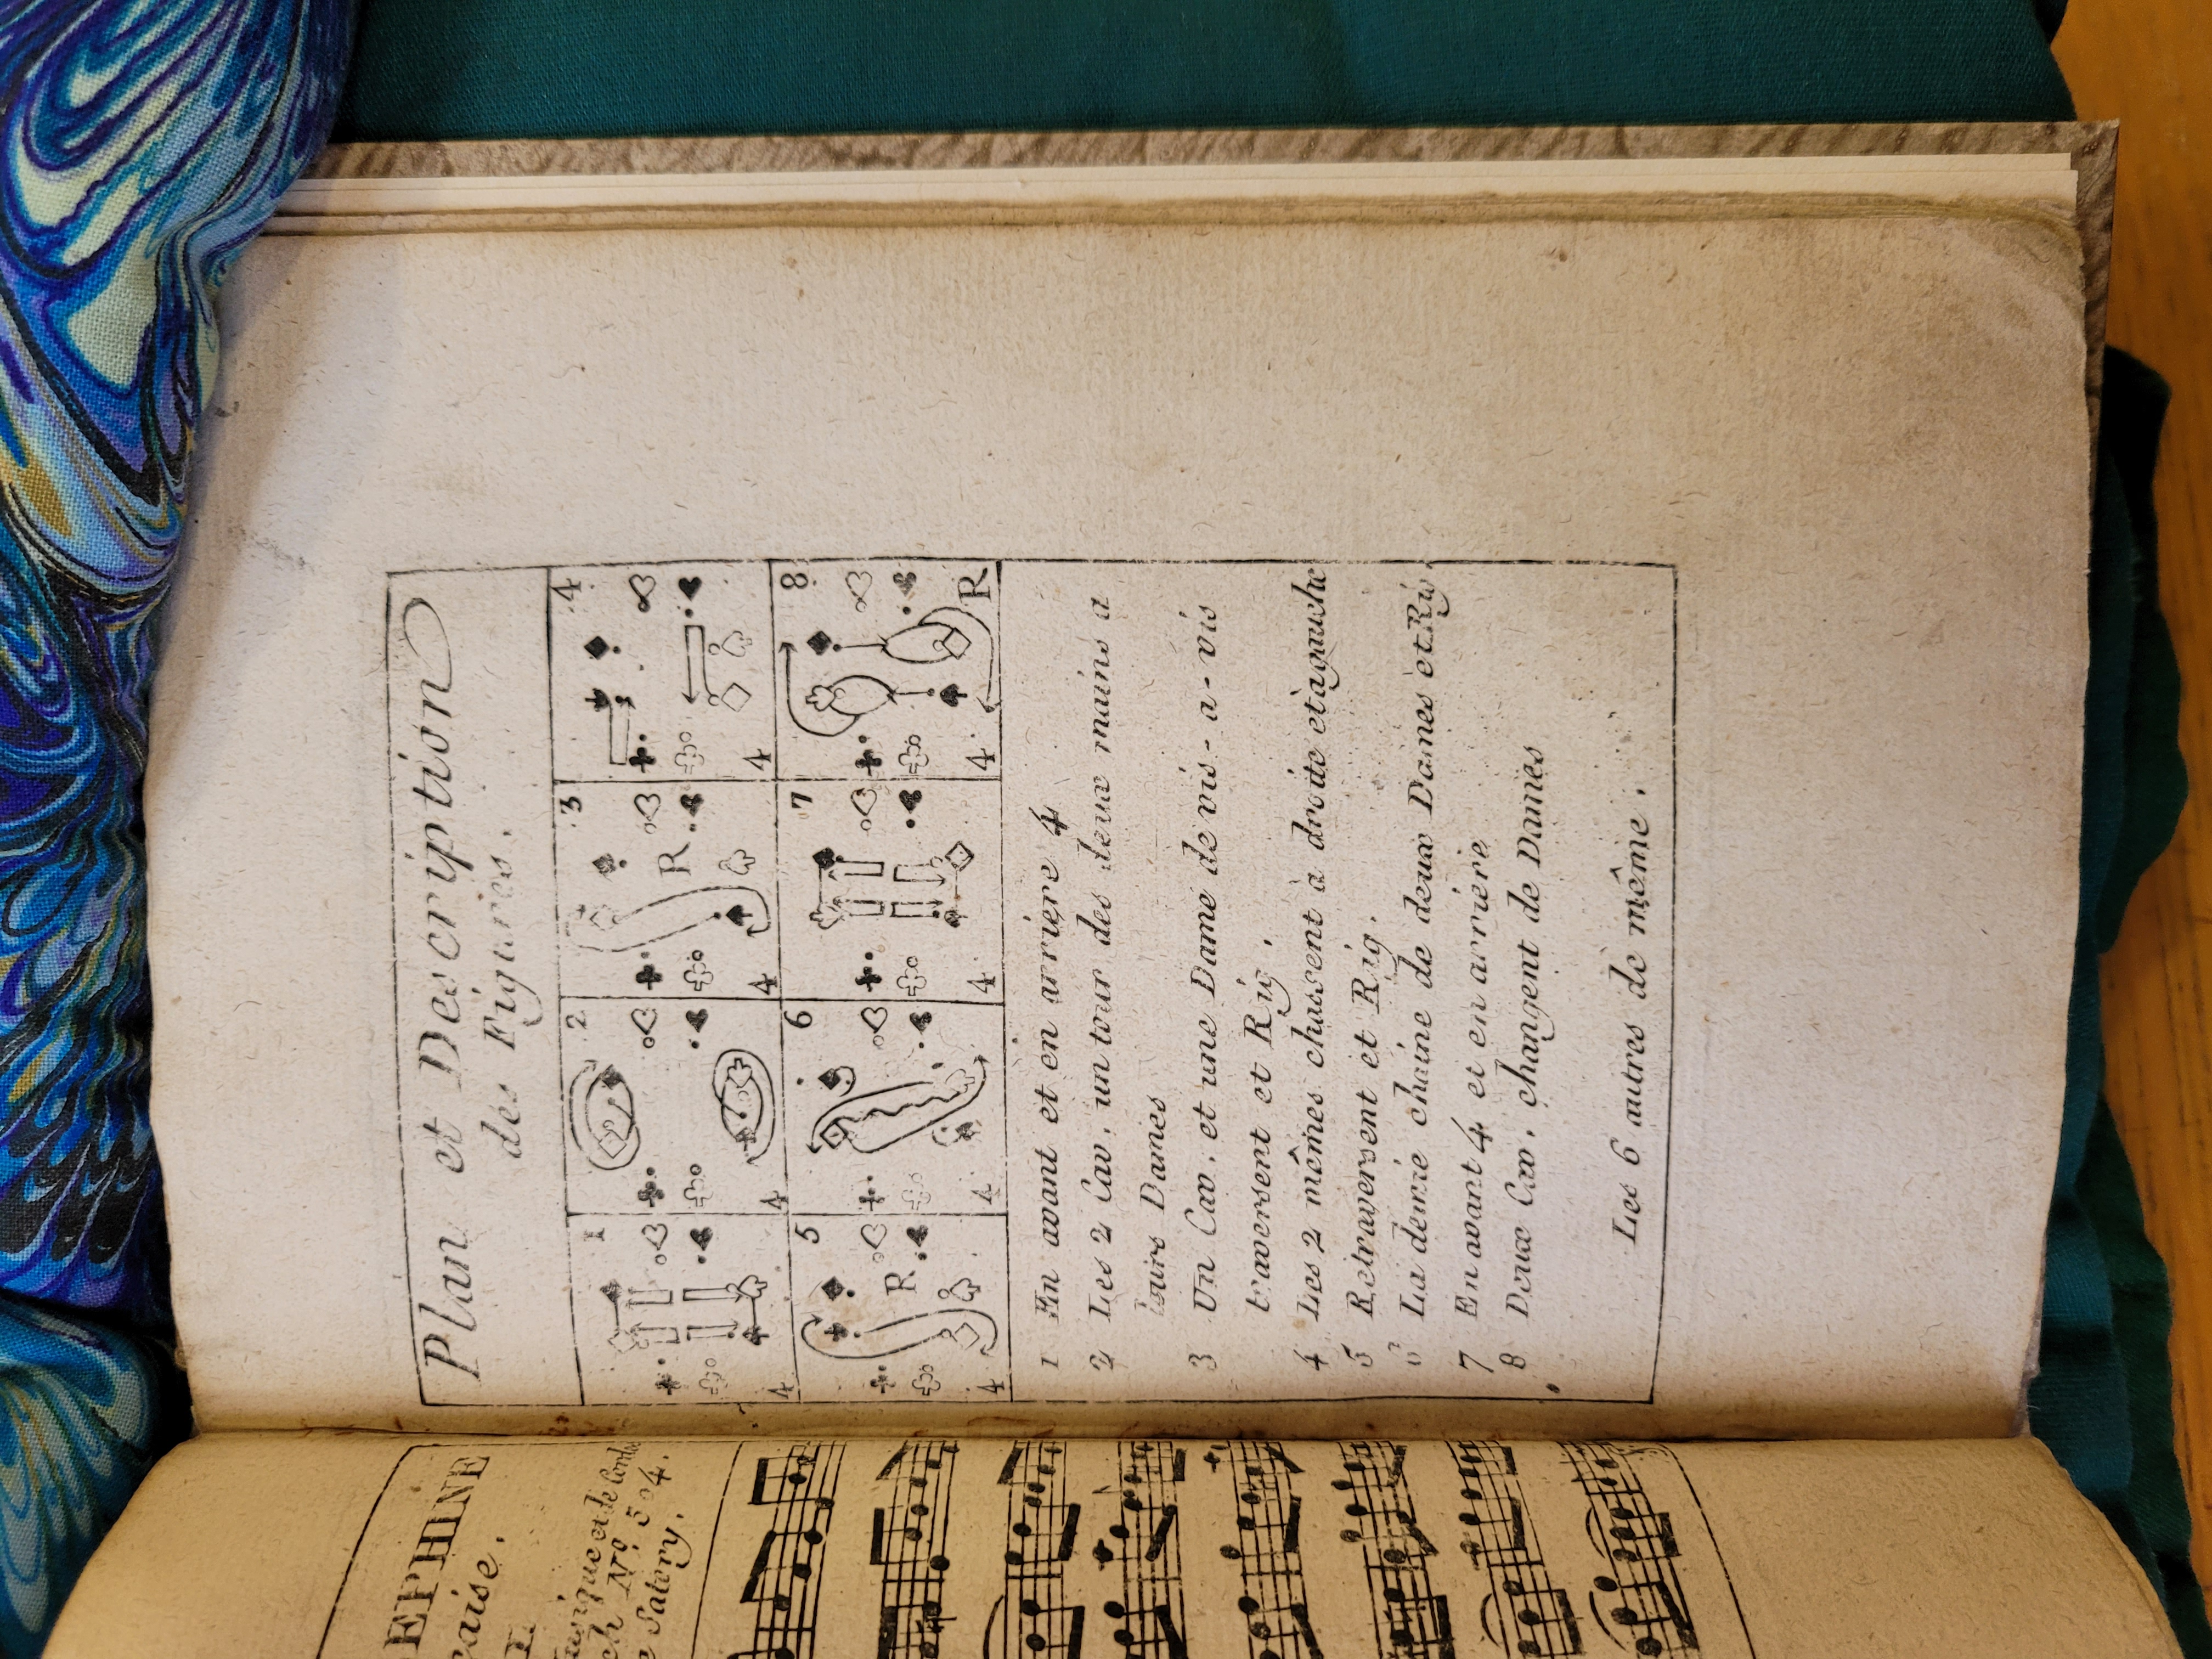 Plan et Description
des Figures.
1 2 3 4
R
4 4 4 4
5 6 7 8
R
4 4 4 4 R
1 En avant et en arriere 4
2 Les 2 Cav. un tour des deux mains a
leurs Dames
3 Un Cav. et une Dame de vis-a-vis
traversent et Rig.
4 Les 2 mêmes chassent à droite et à gauche
5 Retraversent et Rig.
6 La demie chaine de deux Dames et Rig.
7 En avant 4 et en arriere
8 Deux Cav. changent de Dames
Les 6 autres de même.
EPHINE
caise.
usique et de Corde
ch No. 504.
Satory.